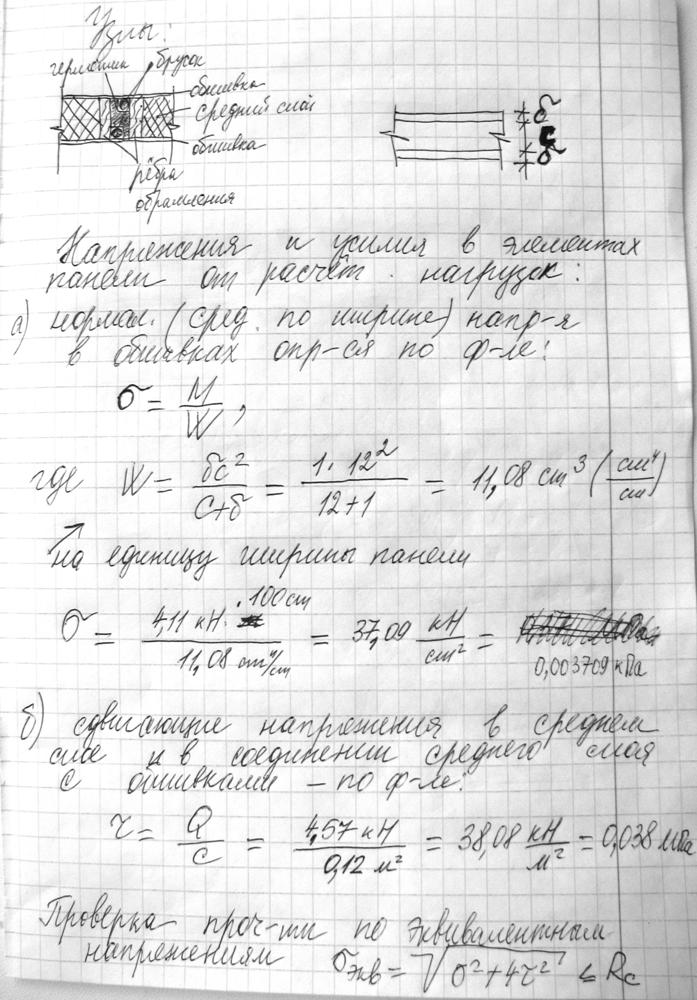 Узлы:
герметик брусок
обшивка
средний слой
обшивка
рёбра
обрамления
δ
c
δ
Напряжения и усилия в элементах
панели от расчёт. нагрузок:
а) нормал. (сред. по ширине) напр-я
в обшивках опр-ся по ф-ле:
σ = M/W,
где W = δc²/(c+δ) = 1·12²/(12+1) = 11,08 см³ (см⁴/см)
на единицу ширины панели
σ = 4,11 кН·100см / 11,08 см⁴/см = 37,09 кН/см² =
0,003709 кПа
б) сдвигающие напряжения в среднем
слое и в соединении среднего слоя
с обшивками – по ф-ле:
τ = Q/c = 4,57 кН / 0,12 м² = 38,08 кН/м² = 0,038 мПа
Проверка проч-ти по эквивалентным
напряжениям σэкв = √(σ²+4τ²) ≤ Rc